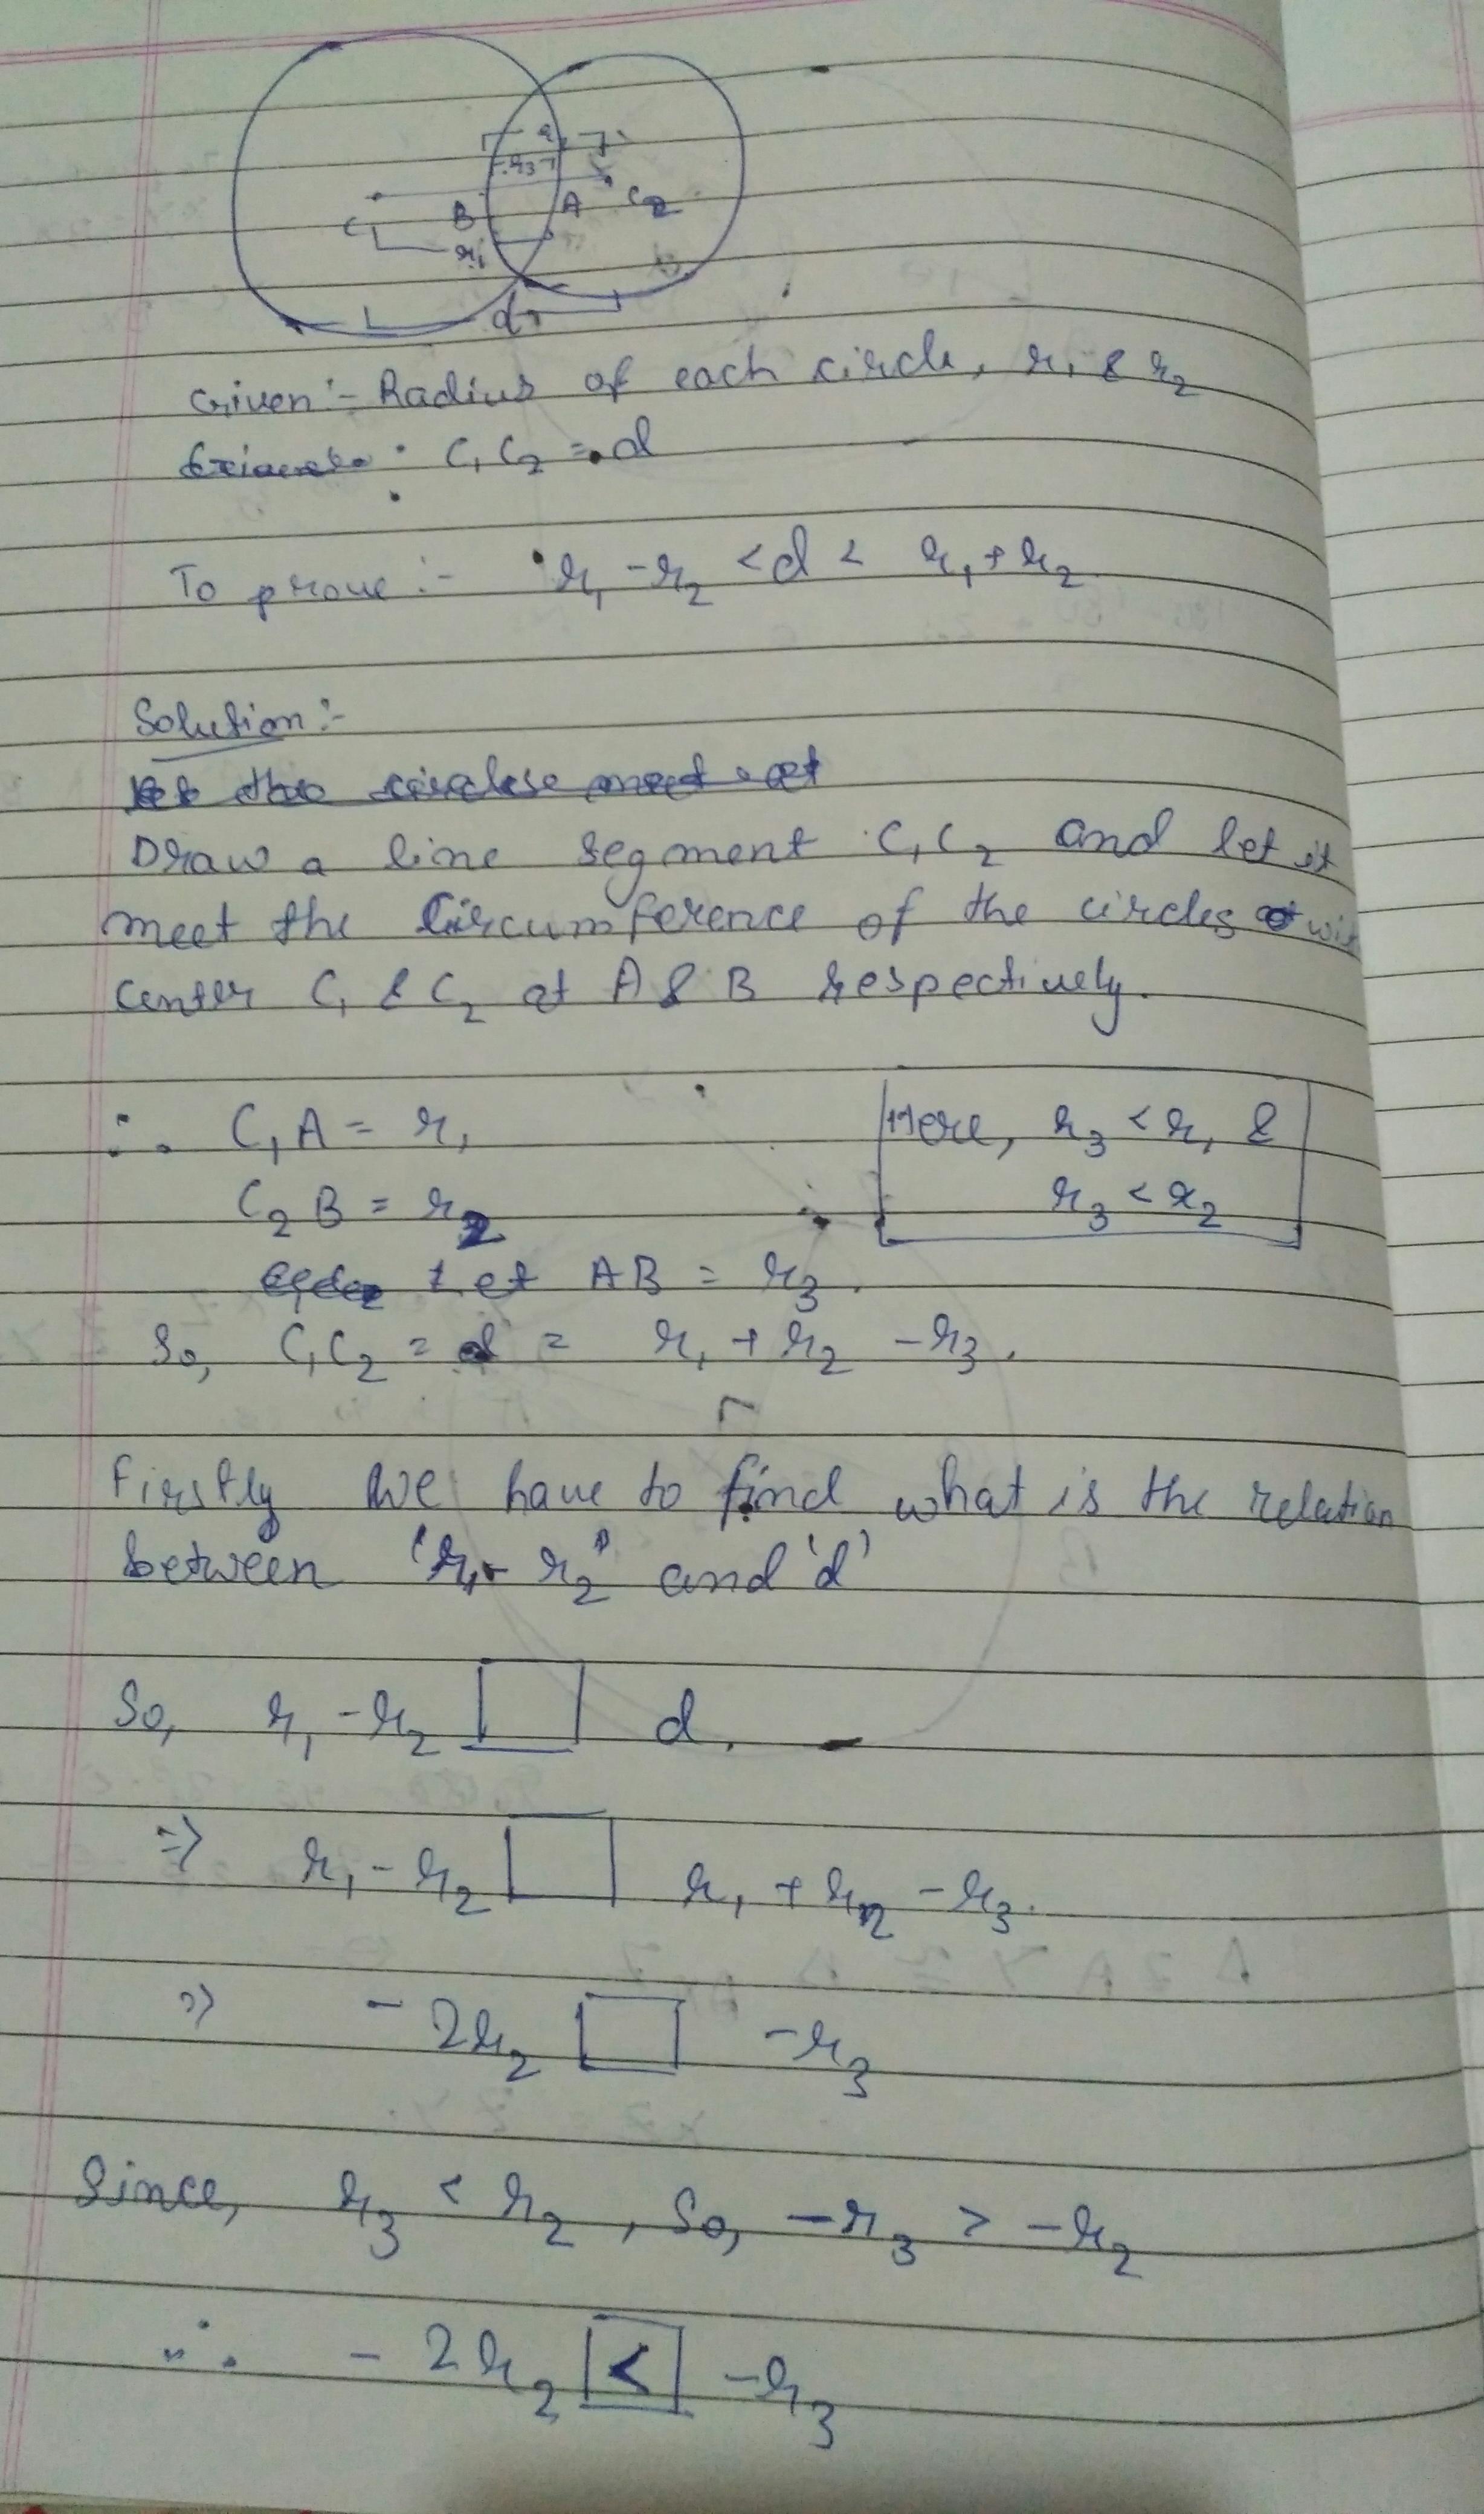 r3
B A C2
C
r1
d
Given :- Radius of each circle, r1 & r2
C1C2 = d
To prove :- r1 - r2 < d < r1 + r2
Solution :-
Draw a line segment C1C2 and let it
meet the Circumference of the circles
center C1 & C2 at A & B respectively.
∴ C1A = r1
Here, r3 < r1 &
r3 < r2
C2B = r2
Let AB = r3.
So, C1C2 = d = r1 + r2 - r3.
Firstly we have to find what is the relation
between 'r1 - r2' and 'd'
So, r1 - r2 □ d.
=> r1 - r2 □ r1 + r2 - r3.
=> - 2r2 □ - r3
Since, r3 < r2, So, - r3 > - r2
∴ - 2r2 < - r3